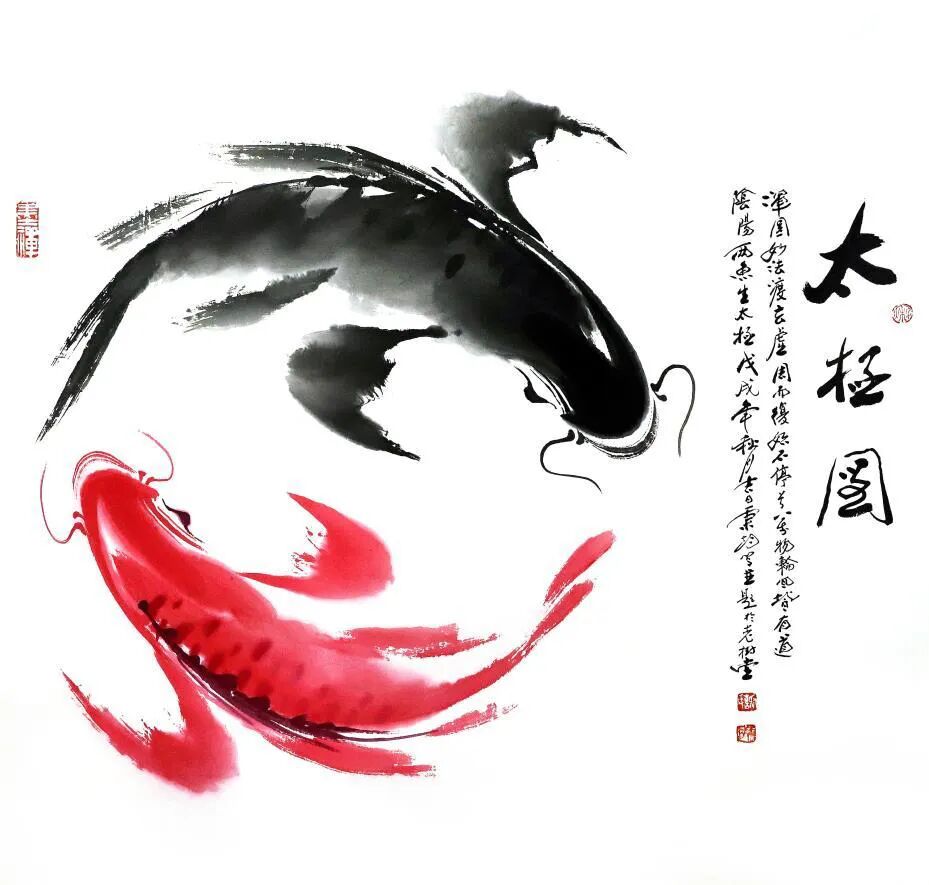 太極圖
渾圓妙法渡玄虛周而復始不停兮萬物輪回皆有道
陰陽兩魚生太極戊戌年秋月吉日 並題於老樹堂